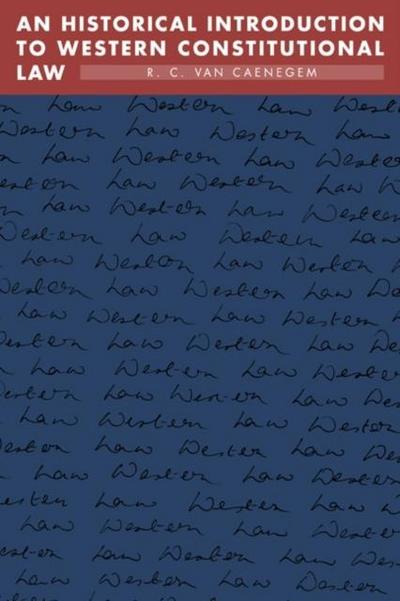 AN HISTORICAL INTRODUCTION
TO WESTERN CONSTITUTIONAL
LAW
R. C. VAN CAENEGEM
Law Western Law Western
Western Law Western Law
Law Western Law Western
Law Western Law
Law Western Law Western
Western Law Western Law
Law Western Law Western
Law Western Law
Law Western Law Western
Western Law Western Law
Law Western Law Western
Law Western Law
Law Western Law Western
Law Western Law
Law Western Law Western
Law Western Law
Law Western Law
Law Western Law
Law Western Law Western